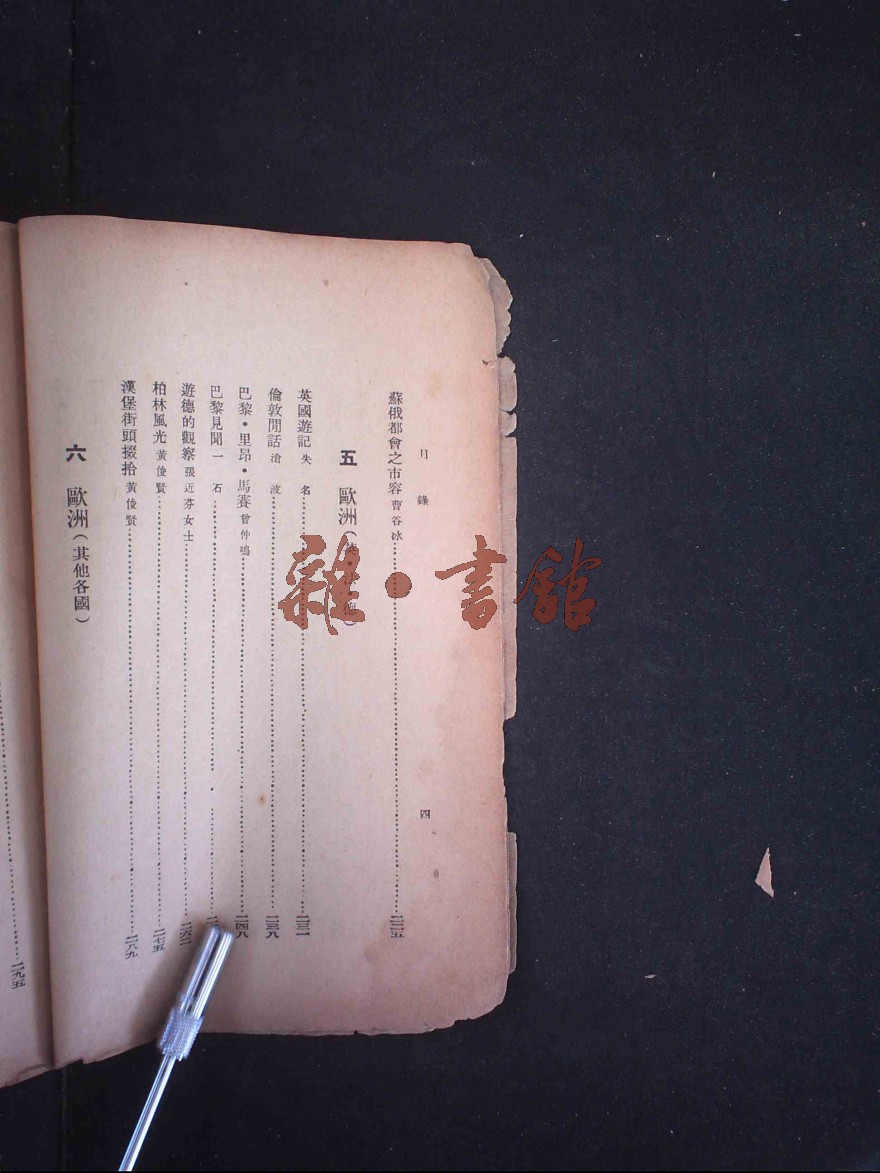 目錄 四
蘇俄都會之市容 曹谷冰 二二五
五 歐洲(英 法 德)
英國遊記 失名 二三一
倫敦閒話 滄波 二三八
巴黎•里昂•馬賽 曾仲鳴 二四八
巴黎見聞 一石
遊德的觀察 張近芬女士 二六二
柏林風光 黃俊賢 二七五
漢堡街頭掇拾 黃俊賢 二八九
六 歐洲(其他各國)
二九五
雜•書館